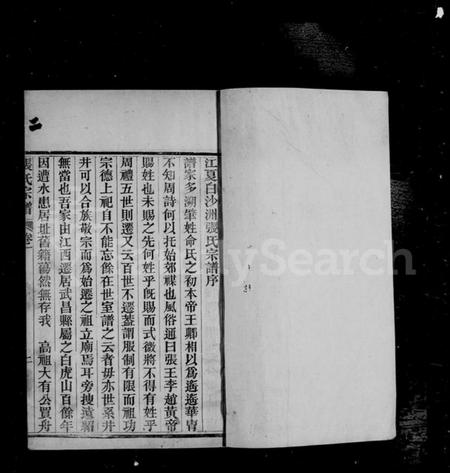 江夏白沙洲張氏宗譜序
譜家多溯肇姓命氏之初本帝王卿相以為遙遙華冑
不知周詩何以托始郊禖也風俗通曰張王李趙黃帝
賜姓也未賜之先何姓乎旣賜而式微將不得有姓乎
周禮五世則遷又云百世不遷蓋謂服制有限而祖功
宗德上溯祖自不能忘餘在世室譜之云者毋亦世系井
井可以合族敬宗而為始遷之祖立廟焉耳旁搜遠紹
無當也吾家由江西遷居武昌縣屬之白虎山百餘年
因遭水患居址舊籍蕩然無存我 高祖大有公買舟
張氏宗譜 卷一
二
MySearch